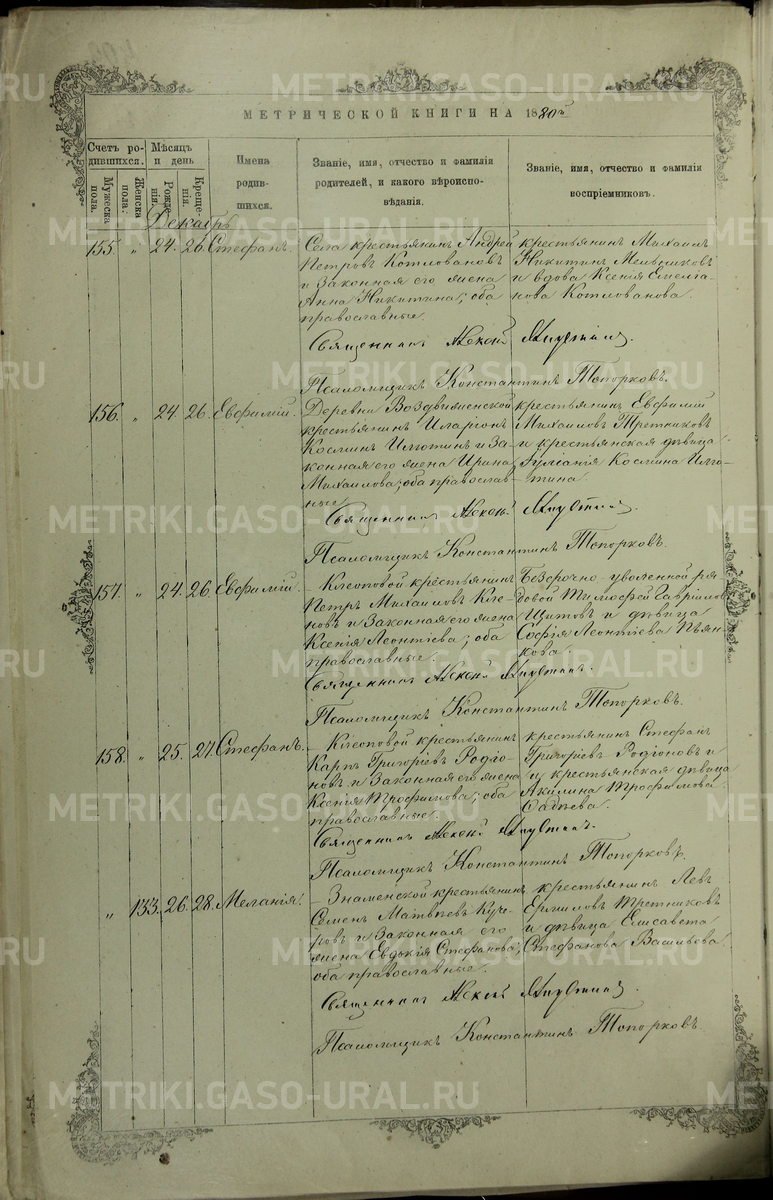 МЕТРИЧЕСКОЙ КНИГИ НА 1880й
Счетъ родившихся.
Мужеска пола.
Женска пола.
Мѣсяцъ и день
Рожденія.
Крещенія.
Имена родившихся.
Званіе, имя, отчество и фамилія родителей, и какого вѣроисповѣданія.
Званіе, имя, отчество и фамилія воспріемниковъ.
Декабрь
155. " 24. 26. Стефанъ.
Села крестьянинъ Андрей
Петровъ Котловановъ
и законная его жена
Анна Никитина; оба
православные.
крестьянинъ Михаилъ
Никитинъ Мельниковъ
и вдова Ксенія Емелья-
нова Котлованова.
Священникъ Алексий
Псаломщикъ Константинъ Топорковъ.
156. " 24. 26. Евфимій.
Деревни Воздвиженской
крестьянинъ Иларіонъ
Косминъ и за-
конная его жена Ирина
Михаилова; оба православ-
ные
крестьянинъ Евфимій
Михаиловъ Третниковъ
и крестьянская дѣвица
Іуліанія Космина
Священникъ Алексий
Псаломщикъ Константинъ Топорковъ.
157. " 24. 26. Евфимій.
Клеоповой крестьянинъ
Петръ Михаиловъ Кле-
новъ и законная его жена
Ксенія Леонтіева; оба
православные.
Безсрочно-уволенной ря-
довой Тимофей Гавриловъ
Щитовъ и дѣвица
Софія Леонтіева Пьян-
кова.
Священникъ Алексий
Псаломщикъ Константинъ Топорковъ.
158. " 25. 27. Стефанъ.
Клеоповой крестьянинъ
Карпъ Григоріевъ Родіо-
новъ и законная его жена
Ксенія Трофимова; оба
православные.
крестьянинъ Стефанъ
Григоріевъ Родіоновъ и
крестьянская дѣвица
Акилина Трофимова
Священникъ Алексий
Псаломщикъ Константинъ Топорковъ.
" 133. 26. 28. Меланія.
Знаменской крестьянинъ
Семенъ Матвѣевъ Куче-
ровъ и законная его
жена Евдокія Стефанова;
оба православные.
крестьянинъ Левъ
Ермиловъ Третниковъ
и дѣвица Елисавета
Стефанова Васильева.
Священникъ Алексий
Псаломщикъ Константинъ Топорковъ.
METRIKI.GASO-URAL.RU